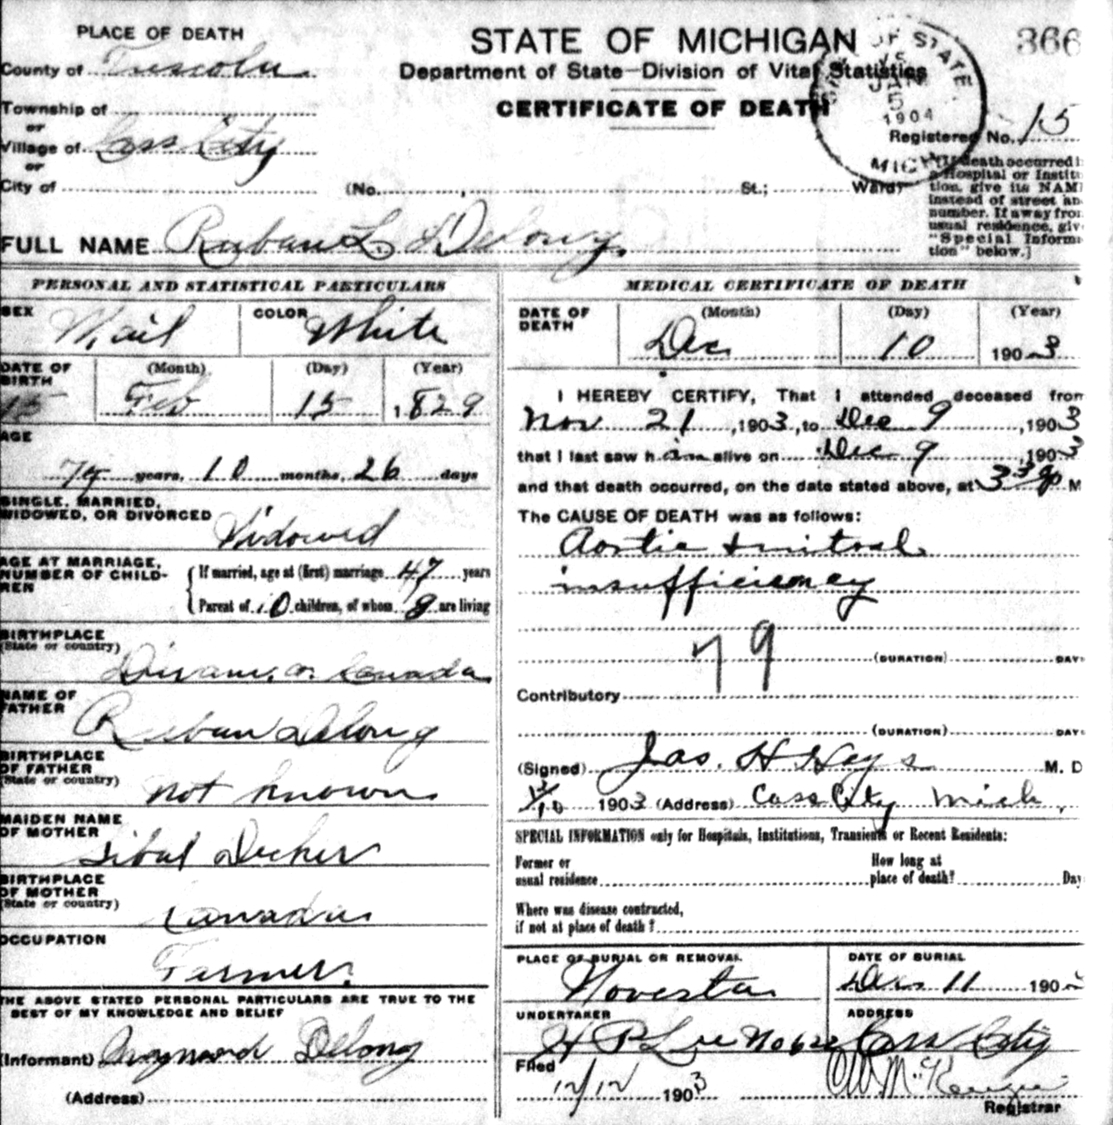 PLACE OF DEATH
STATE OF MICHIGAN
366
County of Tuscola
Department of State—Division of Vital Statistics
OF STATE
15
1904
MICH
Township of
CERTIFICATE OF DEATH
or
Village of Cass City
Registered No. 15
or
City of (No. , St.; Ward)
[If death occurred i
a Hospital or Instit
tion, give its NAM
instead of street an
number. If away fro
usual residence, giv
"Special Inform
tion" below.]
FULL NAME Ruban L. Delong
PERSONAL AND STATISTICAL PARTICULARS
SEX Mail
COLOR White
DATE OF BIRTH (Month) (Day) (Year)
15 Feb 15 1829
AGE
74 years, 10 months, 26 days
SINGLE, MARRIED,
WIDOWED, OR DIVORCED
Widowed
AGE AT MARRIAGE,
NUMBER OF CHILD-
REN
If married, age at (first) marriage 47 years
Parent of 10 children, of whom 8 are living
BIRTHPLACE
(State or country)
Canada
NAME OF
FATHER
Ruban Delong
BIRTHPLACE
OF FATHER
(State or country)
not known
MAIDEN NAME
OF MOTHER
Decker
BIRTHPLACE
OF MOTHER
(State or country)
Canada
OCCUPATION
Farmer
THE ABOVE STATED PERSONAL PARTICULARS ARE TRUE TO THE
BEST OF MY KNOWLEDGE AND BELIEF
(Informant) Delong
(Address)
MEDICAL CERTIFICATE OF DEATH
DATE OF
DEATH
(Month) (Day) (Year)
Dec 10 1903
I HEREBY CERTIFY, That I attended deceased from
Nov 21, 1903, to Dec 9, 1903
that I last saw him alive on Dec 9, 1903
and that death occurred, on the date stated above, at 3 M
The CAUSE OF DEATH was as follows:
Aortic
insufficiency
79
(DURATION) DAY
Contributory
(DURATION) DAY
(Signed) Jas. H Hays M. D
12/10 1903 (Address) Cass City Mich.
SPECIAL INFORMATION only for Hospitals, Institutions, Transients or Recent Residents:
Former or
usual residence
How long at
place of death? Day
Where was disease contracted,
if not at place of death?
PLACE OF BURIAL OR REMOVAL
Novesta
DATE OF BURIAL
Dec 11 190
UNDERTAKER
H P Lee
ADDRESS
Cass City
Filed
12/12 1903
McKenzie
Registrar